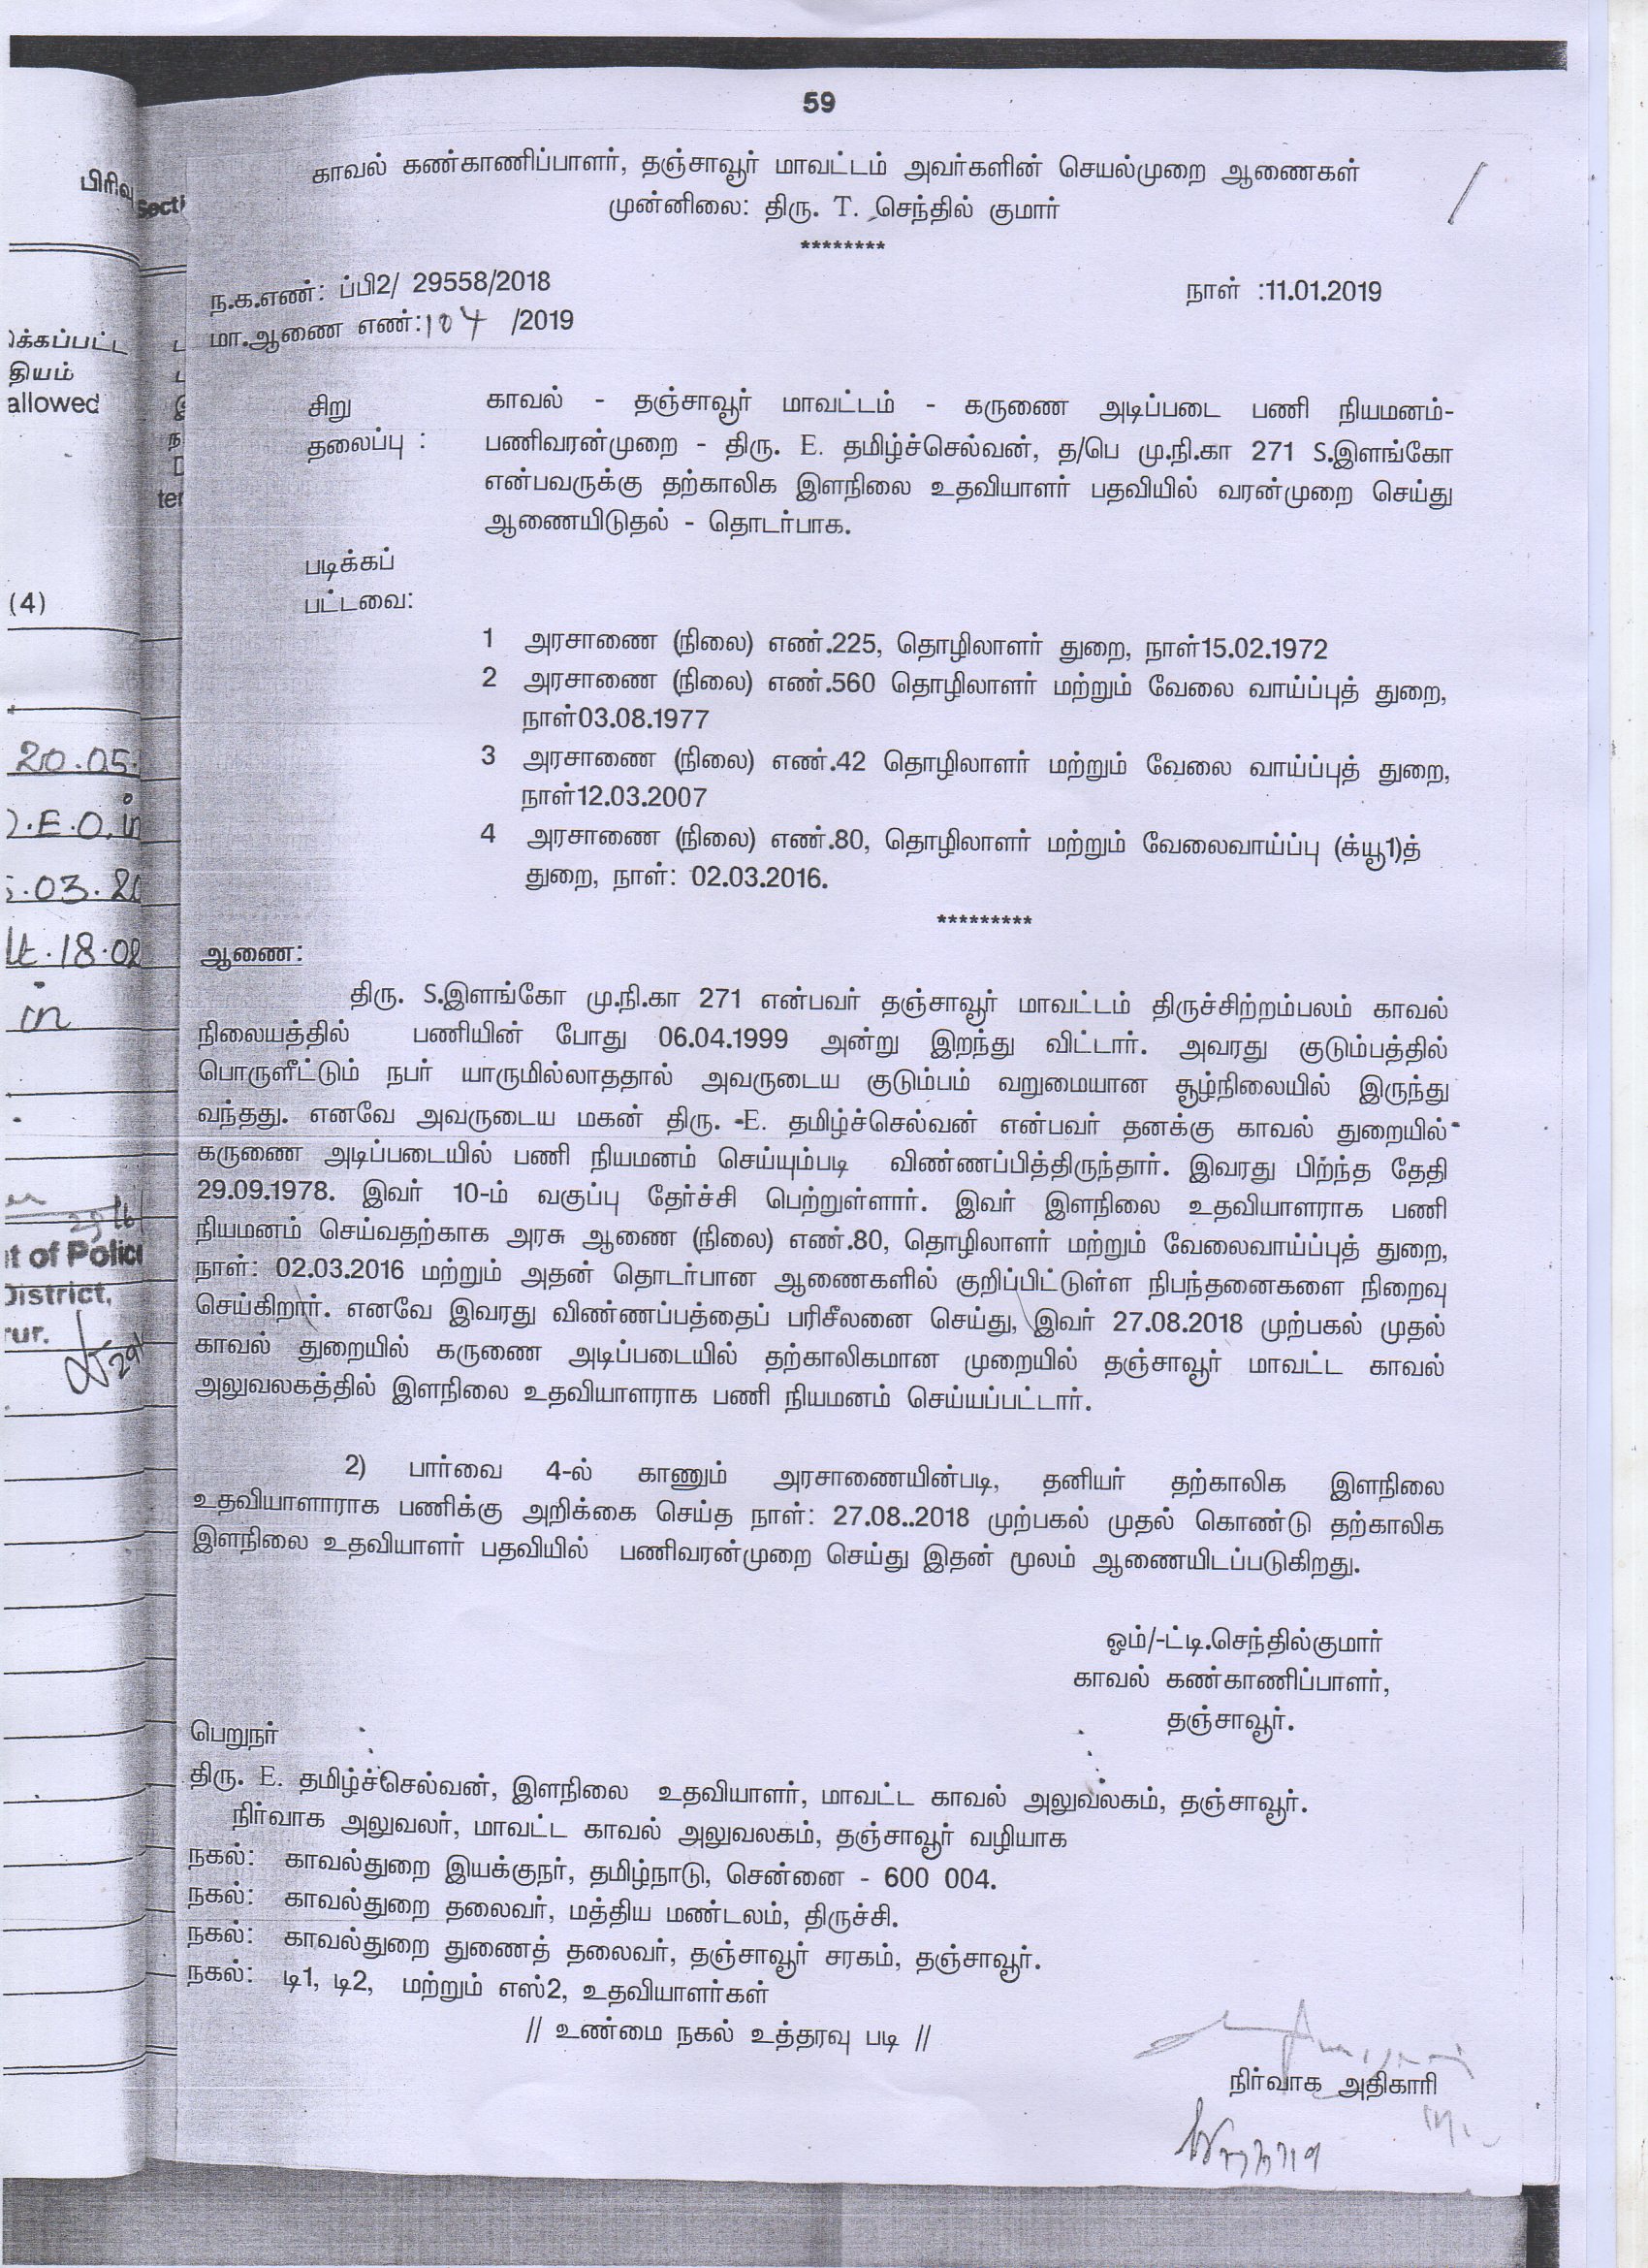 59
காவல் கண்காணிப்பாளர், தஞ்சாவூர் மாவட்டம் அவர்களின் செயல்முறை ஆணைகள்
முன்னிலை: திரு. T. செந்தில் குமார்
********
ந.க.எண்: ப்பி2/ 29558/2018 நாள் :11.01.2019
மா.ஆணை எண்:104 /2019
சிறு தலைப்பு :
காவல் - தஞ்சாவூர் மாவட்டம் - கருணை அடிப்படை பணி நியமனம்-
பணிவரன்முறை - திரு. E. தமிழ்ச்செல்வன், த/பெ மு.நி.கா 271 S.இளங்கோ
என்பவருக்கு தற்காலிக இளநிலை உதவியாளர் பதவியில் வரன்முறை செய்து
ஆணையிடுதல் - தொடர்பாக.
படிக்கப்
பட்டவை:
1 அரசாணை (நிலை) எண்.225, தொழிலாளர் துறை, நாள்15.02.1972
2 அரசாணை (நிலை) எண்.560 தொழிலாளர் மற்றும் வேலை வாய்ப்புத் துறை,
நாள்03.08.1977
3 அரசாணை (நிலை) எண்.42 தொழிலாளர் மற்றும் வேலை வாய்ப்புத் துறை,
நாள்12.03.2007
4 அரசாணை (நிலை) எண்.80, தொழிலாளர் மற்றும் வேலைவாய்ப்பு (க்யூ1)த்
துறை, நாள்: 02.03.2016.
*********
ஆணை:
திரு. S.இளங்கோ மு.நி.கா 271 என்பவர் தஞ்சாவூர் மாவட்டம் திருச்சிற்றம்பலம் காவல்
நிலையத்தில் பணியின் போது 06.04.1999 அன்று இறந்து விட்டார். அவரது குடும்பத்தில்
பொருளீட்டும் நபர் யாருமில்லாததால் அவருடைய குடும்பம் வறுமையான சூழ்நிலையில் இருந்து
வந்தது. எனவே அவருடைய மகன் திரு. E. தமிழ்ச்செல்வன் என்பவர் தனக்கு காவல் துறையில்
கருணை அடிப்படையில் பணி நியமனம் செய்யும்படி விண்ணப்பித்திருந்தார். இவரது பிறந்த தேதி
29.09.1978. இவர் 10-ம் வகுப்பு தேர்ச்சி பெற்றுள்ளார். இவர் இளநிலை உதவியாளராக பணி
நியமனம் செய்வதற்காக அரசு ஆணை (நிலை) எண்.80, தொழிலாளர் மற்றும் வேலைவாய்ப்புத் துறை,
நாள்: 02.03.2016 மற்றும் அதன் தொடர்பான ஆணைகளில் குறிப்பிட்டுள்ள நிபந்தனைகளை நிறைவு
செய்கிறார். எனவே இவரது விண்ணப்பத்தைப் பரிசீலனை செய்து, இவர் 27.08.2018 முற்பகல் முதல்
காவல் துறையில் கருணை அடிப்படையில் தற்காலிகமான முறையில் தஞ்சாவூர் மாவட்ட காவல்
அலுவலகத்தில் இளநிலை உதவியாளராக பணி நியமனம் செய்யப்பட்டார்.
2) பார்வை 4-ல் காணும் அரசாணையின்படி, தனியர் தற்காலிக இளநிலை
உதவியாளாராக பணிக்கு அறிக்கை செய்த நாள்: 27.08..2018 முற்பகல் முதல் கொண்டு தற்காலிக
இளநிலை உதவியாளர் பதவியில் பணிவரன்முறை செய்து இதன் மூலம் ஆணையிடப்படுகிறது.
ஓம்/-ட்டி.செந்தில்குமார்
காவல் கண்காணிப்பாளர்,
தஞ்சாவூர்.
பெறுநர்
திரு. E. தமிழ்ச்செல்வன், இளநிலை உதவியாளர், மாவட்ட காவல் அலுவலகம், தஞ்சாவூர்.
நிர்வாக அலுவலர், மாவட்ட காவல் அலுவலகம், தஞ்சாவூர் வழியாக
நகல்: காவல்துறை இயக்குநர், தமிழ்நாடு, சென்னை - 600 004.
நகல்: காவல்துறை தலைவர், மத்திய மண்டலம், திருச்சி.
நகல்: காவல்துறை துணைத் தலைவர், தஞ்சாவூர் சரகம், தஞ்சாவூர்.
நகல்: டி1, டி2, மற்றும் எஸ்2, உதவியாளர்கள்
// உண்மை நகல் உத்தரவு படி //
நிர்வாக அதிகாரி
பிரிவு
allowed
(4)
20.05.
.E.O. in
.03.20
lt.18.02
in
t of Police
District,
rur.